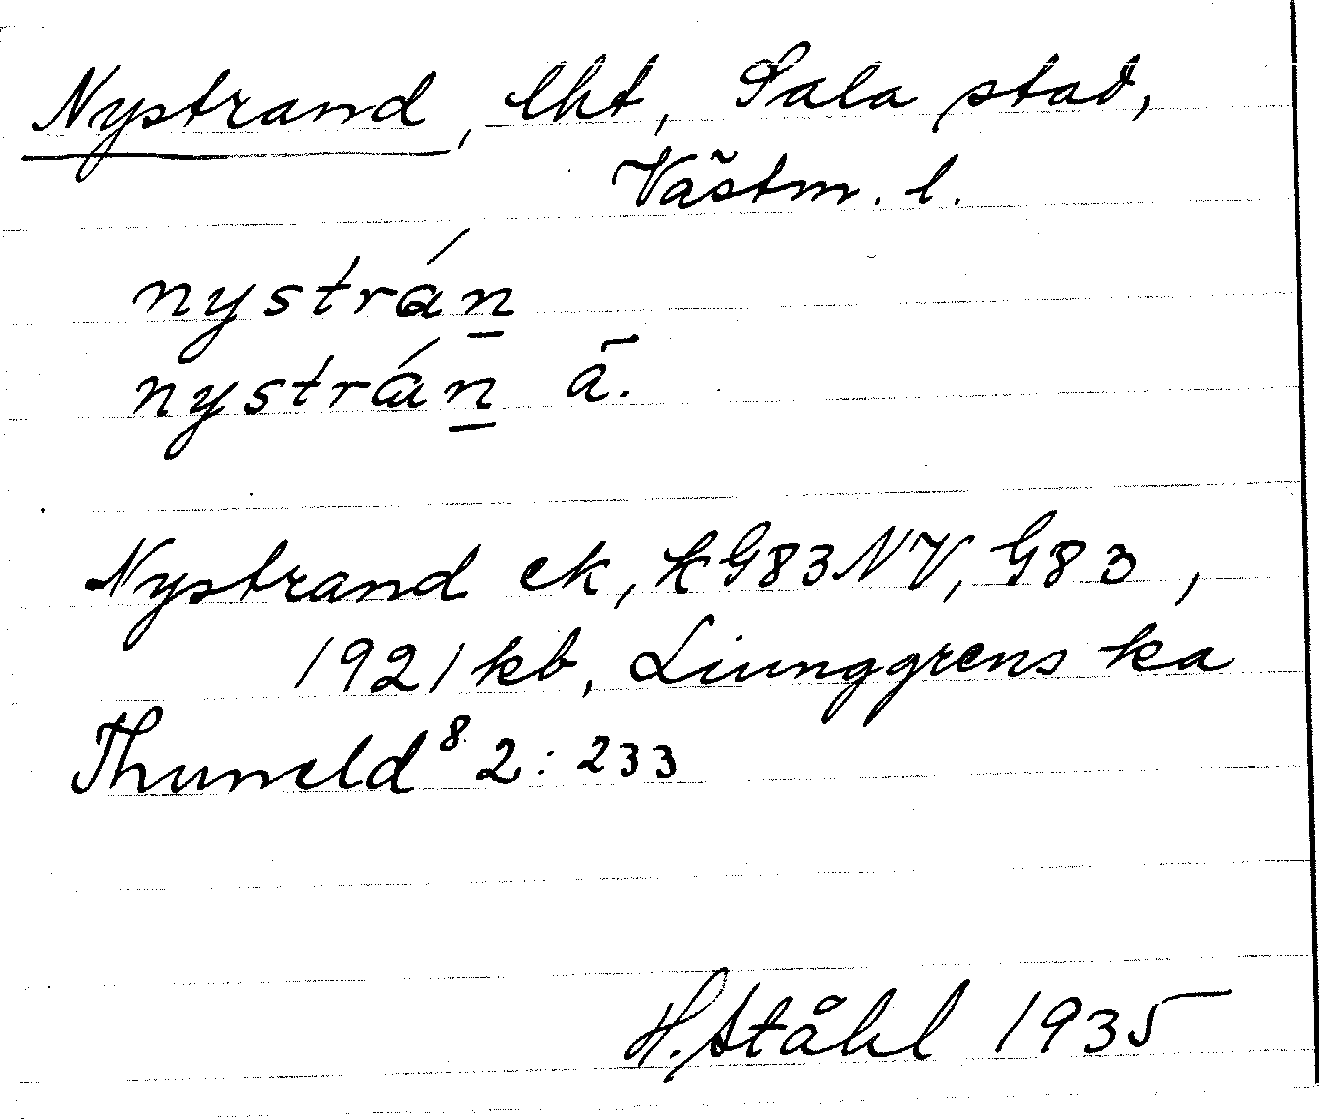 Nystrand, lht, Sala stad,
Västm. l.
nystrán
nystrán ä.
Nystrand ek, kG83NV, G83,
1921 kb, Liunggrens ka
Thuneld⁸ 2:233
H. Ståhl 1935